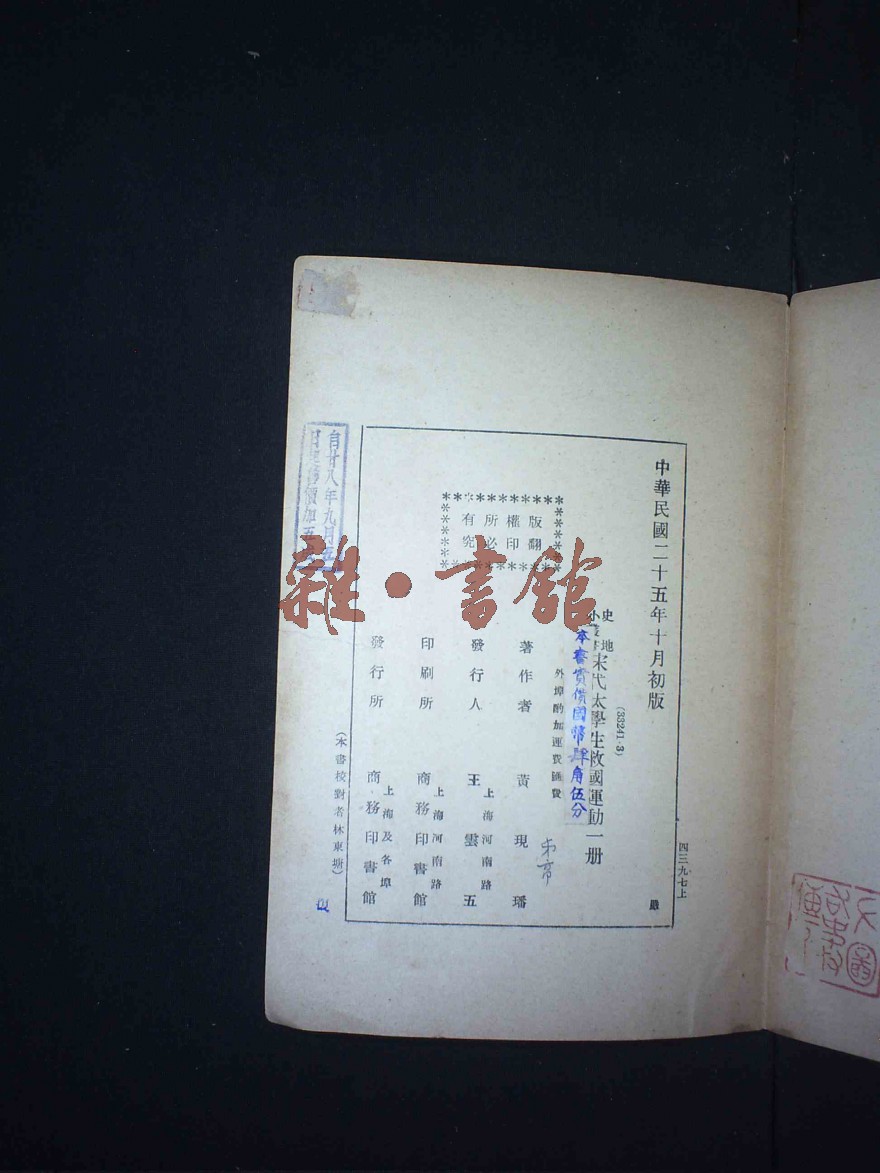 中華民國二十五年十月初版
四三九七上
(33241·3)
史地小叢書
宋代太學生救國運動一册
本書實價國幣肆角伍分
外埠酌加運費匯費
版權所有
翻印必究
著作者 黃現璠
發行人 王雲五
上海河南路
印刷所 商務印書館
上海河南路
發行所 商務印書館
上海及各埠
(本書校對者林東塘)
自廿八年九月五
雜·書館